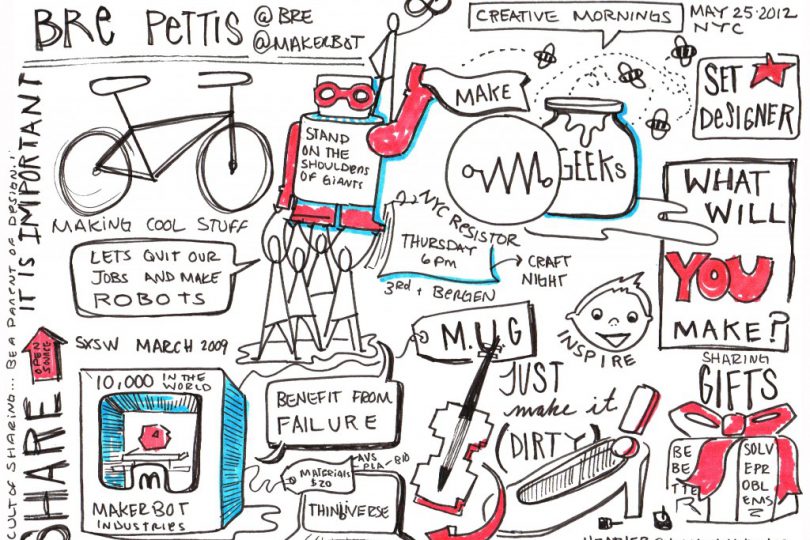 BRE PETTIS
@BRE
@MAKERBOT
CREATIVE MORNINGS
MAY 25·2012
NYC
MAKING COOL STUFF
STAND
ON THE
SHOULDERS
OF GIANTS
MAKE
GEEKS
SET
DESIGNER
WHAT
WILL
YOU
MAKE?
LETS QUIT OUR
JOBS AND MAKE
ROBOTS
NYC RESISTOR
THURSDAY
6PM
CRAFT
NIGHT
3rd + BERGEN
INSPIRE
CULT OF SHARING... BE A PARENT OF DESIGN!!
SHARE IT IS IMPORTANT
OPEN
SOURCE
SXSW MARCH 2009
10,000 IN THE
WORLD
M
MAKERBOT
INDUSTRIES
BENEFIT FROM
FAILURE
M.U.G
MATERIALS
$20
THINGIVERSE
JUST
make it
(DIRTY)
SHARING
GIFTS
BE
BE
TTE
R
SOLV
EPR
OBL
EMS